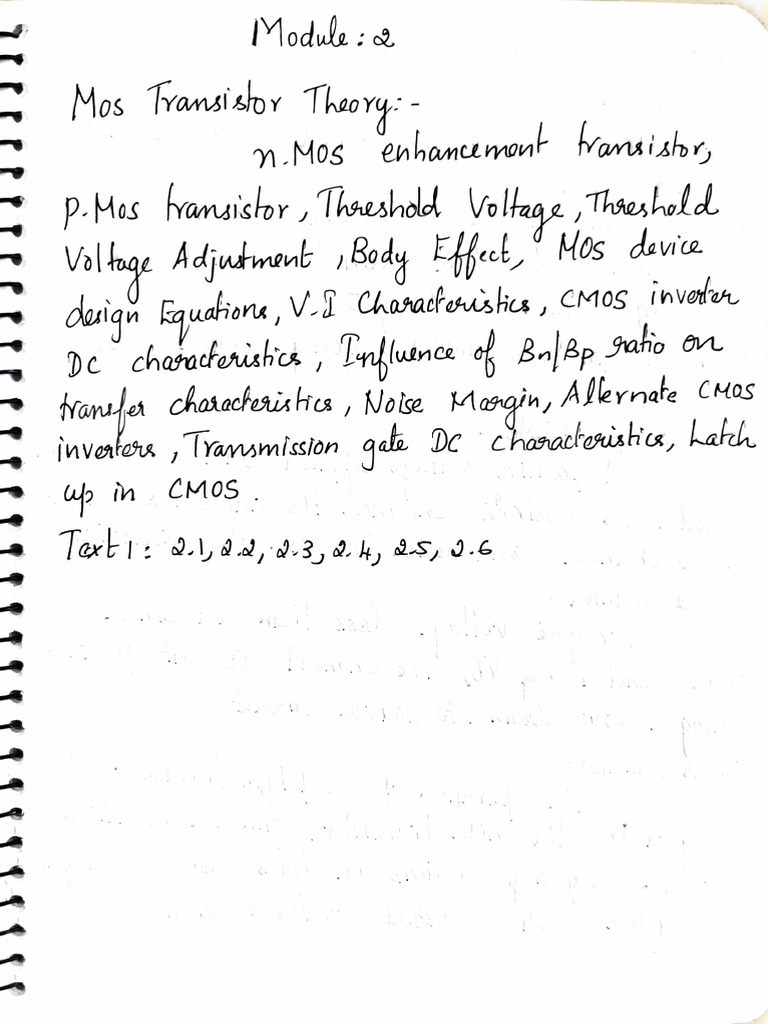 Module : 2
Mos Transistor Theory:-
n.MOS enhancement transistor,
p.Mos transistor, Threshold Voltage, Threshold
Voltage Adjustment, Body Effect, MOS device
design Equations, V-I Characteristics, CMOS inverter
DC characteristics, Influence of Bn/Bp ratio on
transfer characteristics, Noise Margin, Alternate CMOS
inverters, Transmission gate DC characteristics, Latch
up in CMOS.
Text 1 : 2.1, 2.2, 2.3, 2.4, 2.5, 2.6